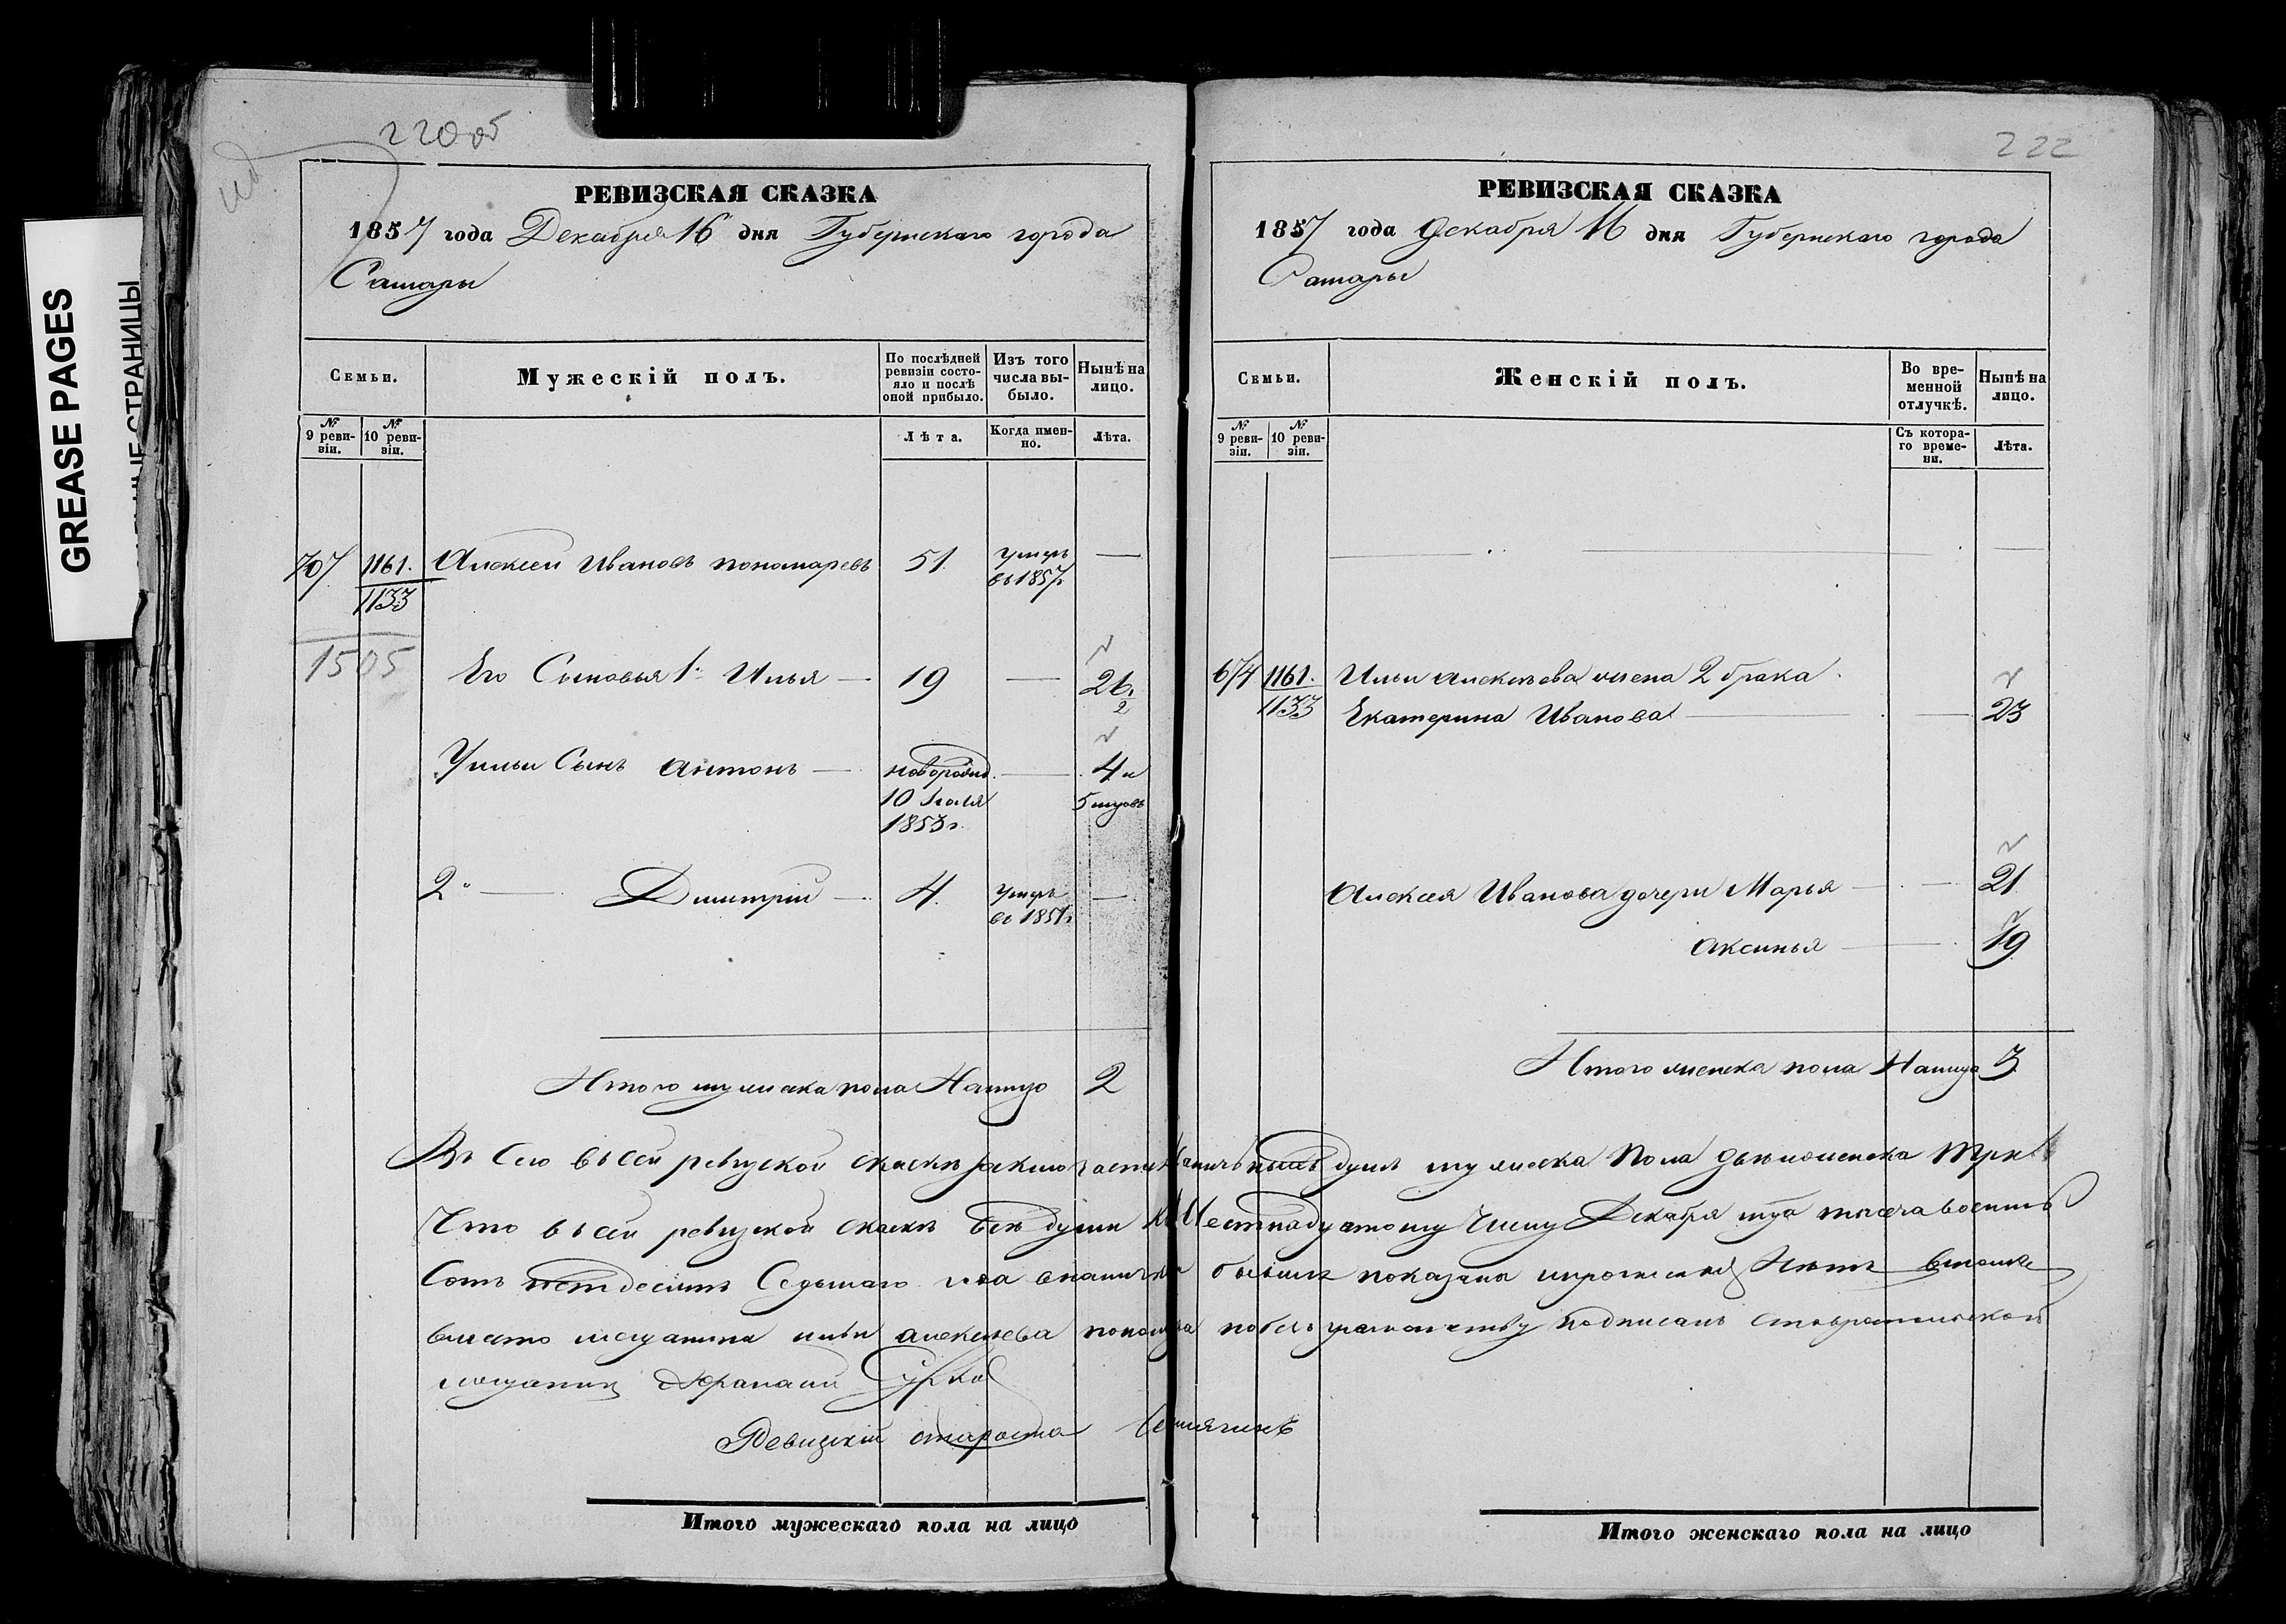 GREASE PAGES
СТРАНИЦЫ
220об
РЕВИЗСКАЯ СКАЗКА
1857 года Декабря 16 дня Губернскаго города
Самары
Семьи.
Мужескій полъ.
По послѣдней ревизіи состояло и послѣ оной прибыло.
Изъ того числа выбыло.
Нынѣ на лицо.
№ 9 ревизіи.
№ 10 ревизіи.
Лѣта.
Когда именно.
Лѣта.
707 1161. Алексей Ивановъ пономаревъ 51. умеръ въ 1857г —
1133
1505
Его Сыновья 1. Илья — 19 — 26 1/2
У ильи Сынъ антонъ — новорожд. 10 Іюля 1853г. — 4 и 5 мцовъ
2. — Димитрій — 4. умеръ въ 1851г —
Итого мужеска пола Налицо 2
222
РЕВИЗСКАЯ СКАЗКА
1857 года Декабря 16 дня Губернскаго города
Самары
Семьи.
Женскій полъ.
Во временной отлучкѣ.
Нынѣ на лицо.
№ 9 ревизіи.
№ 10 ревизіи.
Съ котораго времени.
Лѣта.
674 1161. Ильи алексѣева жена 2 брака
1133 Екатерина Иванова — 23
Алексея Иванова дочери Марья — 21
Аксинья — 19
Итого женска пола Налицо 3
въ сей ревизской скаскѣ душъ мужеска Пола двѣ и женска три
Что въ сей ревизской скаскѣ всѣ души къ Шестнадцатому Числу Декабря тысеча восемь
Сотъ петдесятъ Седьмаго года показана Нетъ в томже
вместо мещанина ильи алексѣева пономарева подписалъ ставропольской
мещанинъ Афанасий Сурков
Ревизскій староста
Итого мужескаго пола на лицо
Итого женскаго пола на лицо